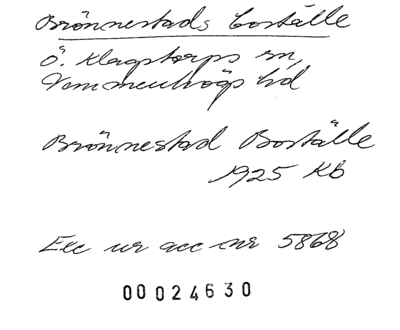 Brönnestads boställe
Ö. Klagstorps sn,
Vemmenhögs hd
Brönnestad Boställe
1925 Kb
Exc ur acc nr 5868
00024630